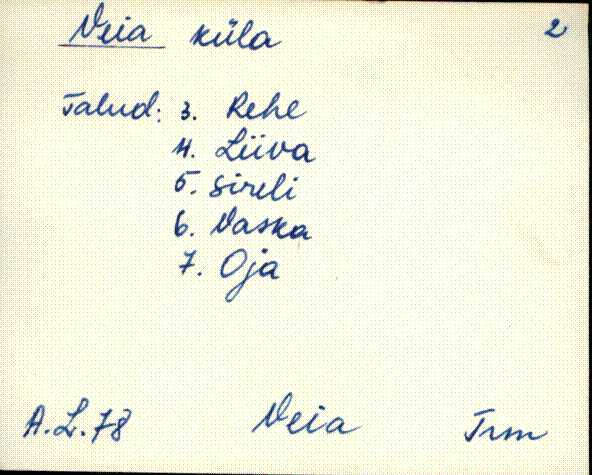 Veia küla 2
Talud: 3. Rehe
4. Liiva
5. Sireli
6. Vaska
7. Oja
A.L.78 Veia Trm